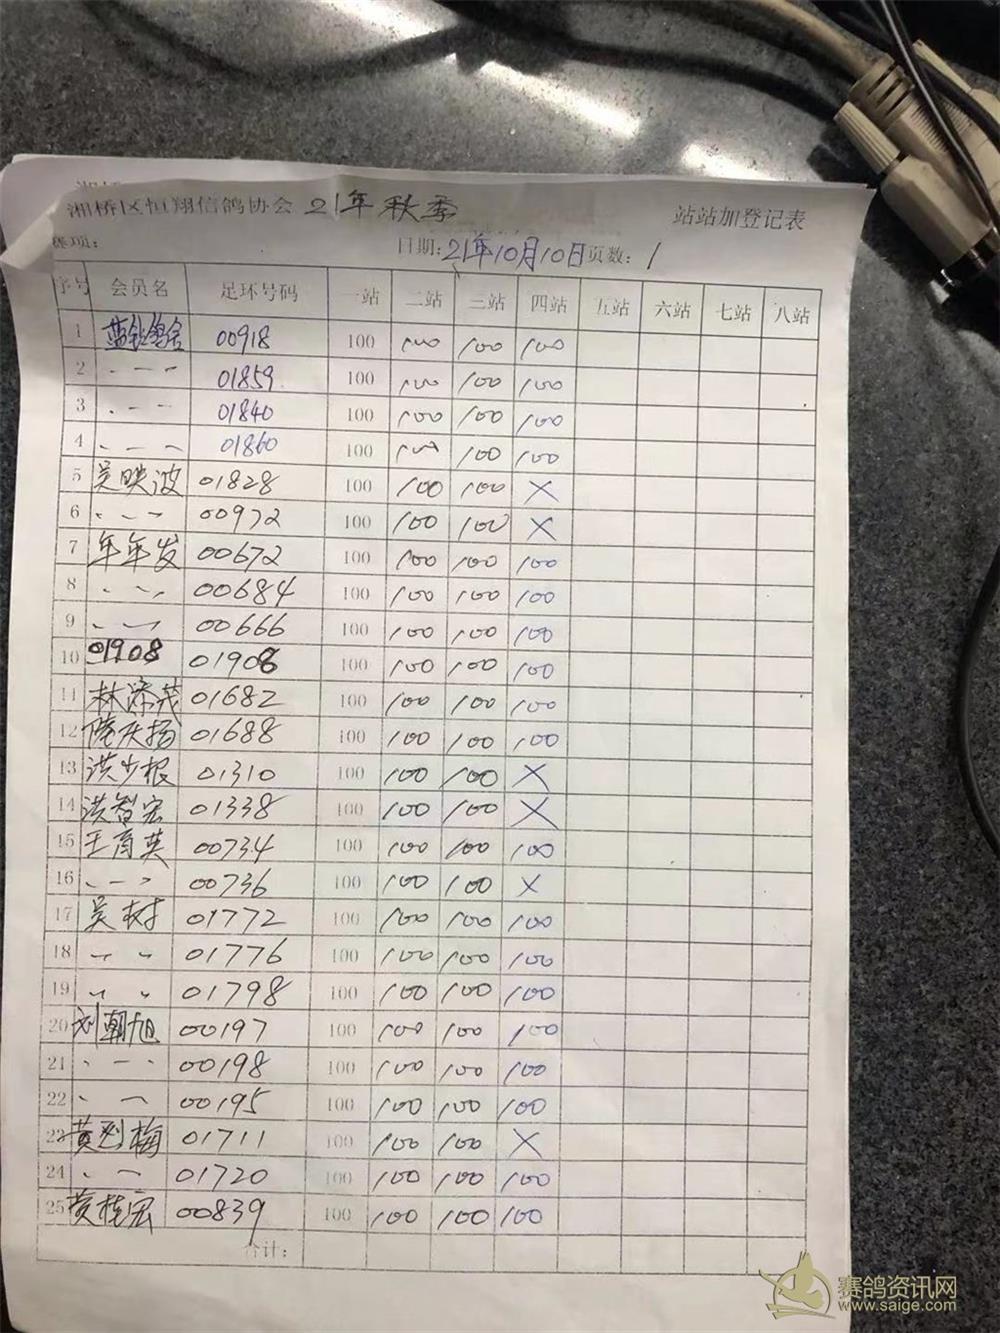 湘桥区恒翔信鸽协会 21年秋季 站站加登记表
赛项: 日期:21年10月10日 页数:1
序号 会员名 足环号码 一站 二站 三站 四站 五站 六站 七站 八站
1 00918 100 100 100 100
2 〃 01859 100 100 100 100
3 〃 01840 100 100 100 100
4 〃 01860 100 100 100 100
5 吴映波 01828 100 100 100 X
6 〃 00972 100 100 100 X
7 年年发 00672 100 100 100 100
8 〃 00684 100 100 100 100
9 〃 00666 100 100 100 100
10 01908 01908 100 100 100 100
11 林添茂 01682 100 100 100 100
12 01688 100 100 100 100
13 洪少根 01310 100 100 100 X
14 洪智宏 01338 100 100 100 X
15 王育英 00734 100 100 100 100
16 〃 00736 100 100 100 X
17 吴树 01772 100 100 100 100
18 〃 01776 100 100 100 100
19 〃 01798 100 100 100 100
20 刘朝旭 00197 100 100 100 100
21 〃 00198 100 100 100 100
22 〃 00195 100 100 100 100
23 01711 100 100 100 X
24 〃 01720 100 100 100 100
25 00839 100 100 100 100
合计:
赛鸽资讯网
www.saige.com